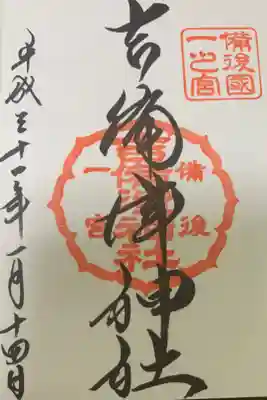 備後國
一之宮
吉備津神社
備後
一宮
吉備津神社
平成三十一年一月十四日